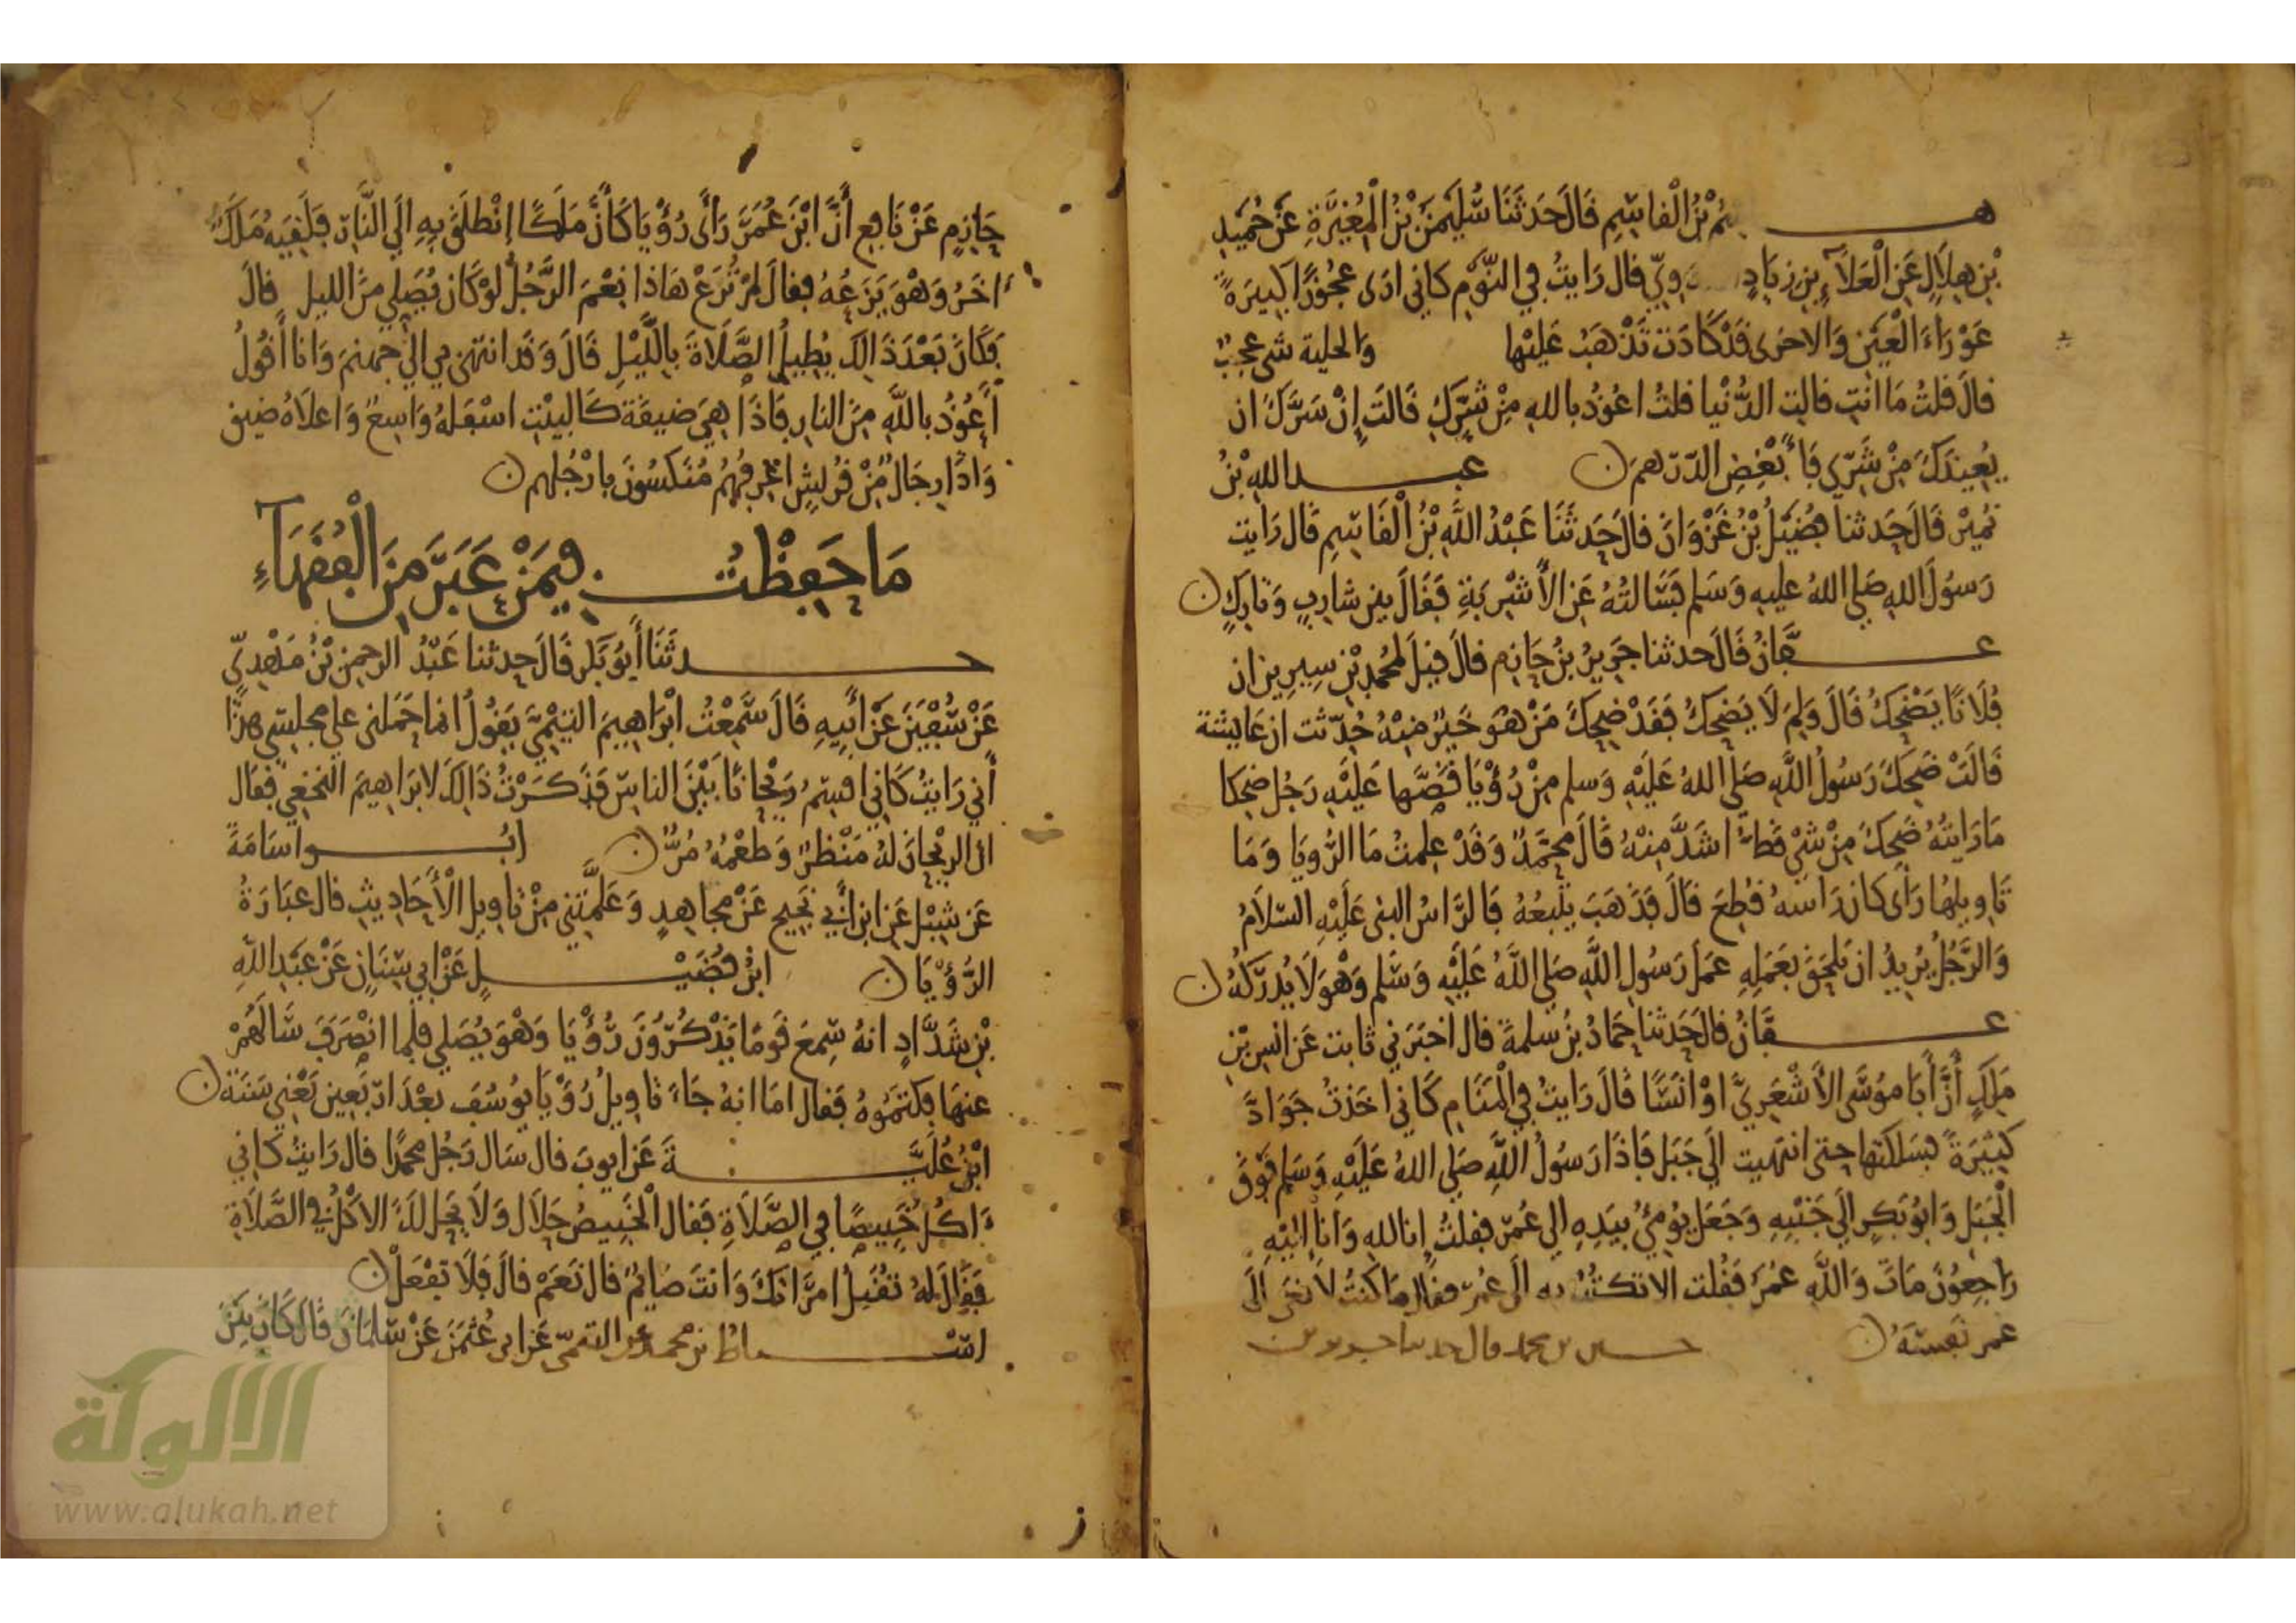 هـــــشم بْنُ الْقاسِمِ قَالَ حَدثَنَا سُلَيمَنُ بْنُ الْمُغِيَّرةِ عَنْ حُمَيدِ
بْنِ هِلَالٍ عَنِ الْعَلَآءِ بنِ زيَادٍ وِيّ قال رَايتُ فِي النَّوْمِ كانى ارَى عجُوزًا كبيَرةً
عَوْرَاءَ الْعَيْنِ وَالاخرى قَدْ كَادَت تَذْهَبُ عَلَيْها والحلية شى عجِبٌ
قالَ قلتُ مَا انتِ قالتِ الدُّنْيا قلتُ اعُوذُ باللهِ مِنْ شَرِّكِ قَالَتْ إِنْ سَرَّكَ ان
يُعِيذَكَ مِنْ شَرِّي فَابْغِضِ الدّرْهمَ عبـــد اللهِ بْنُ
نُمَيْر قَالَ حَدثنا فُضَيْلُ بْنُ غَزْوَانَ قالَ حَدثَنَا عَبْدُ اللَّهِ بْنُ الْقَاسِمِ قَال رَايت
رَسُولَ اللهِ صَلى اللهُ عليهِ وَسَلم فَسَالتُهُ عَنِ الأَشْرِبَةِ فَقَالَ بينَ شاربٍ وَتاركٍ
عـــفَّانُ قَالَ حدثنا جَرِيرُ بنُ حَازِم قالَ قِيلَ لمُحمّدِ بْنِ سِيرِينَ ان
فُلَانًا يَضْحَكُ قَالَ وَلِمَ لَا يَضْحَكُ فَقَدْ ضحِكَ مَنْ هُوَ خَيْرٌ مِنْهُ حُدّثت ان عَايشة
قَالَتْ ضَحِكَ رَسُولُ اللَّهِ صَلى اللهُ عَلَيْهِ وَسلم مِنْ رُؤْيَا قَصَّها عَلَيْهِ رَجُل ضحِكا
مَا رَايتُهُ ضَحِكَ مِنْ شَيْ قطُّ اشَدَّ مِنْهُ قَالَ محمَّدٌ وَقَدْ عَلِمتُ مَا الرُّويَا وَمَا
تَاوِيلُهَا رَأَى كان رَاسَهُ قُطِعَ قالَ فَذَهَبَ يَتْبَعُهُ فَالرَّاسُ النبى عَلَيْهِ السّلاَمُ
وَالرَّجُلُ يُرِيدُ ان يَلْحَقَ بعَمَلِهِ عمَلَ رَسُولِ اللَّهِ صَلى اللَّهُ عَلَيْهِ وَسَّلم وَهُوَ لَا يُدْرِكُهُ
عـــفَّانُ قال حَدثنا حَمادُ بنُ سَلمةَ قال اخبَرَنِي ثابت عَنْ انسِ بْنِ
مَالِكٍ أَنَّ أَبَا مُوسَى الأَشْعَرِيَّ اوْ انَسًا قَالَ رَايتُ فِي الْمَنَامِ كَانِي اخَذتُ جَوَادَّ
كَثِيَرةً فَسَلكتها حتى انتَهيت إِلَى جَبَل فَاذَا رَسُولُ اللَّهِ صَلى اللهُ عَلَيْهِ وَسَلم فَوْقَ
الْجَبَلِ وَابُو بَكرٍ إِلَى جَنْبِهِ وَجَعَلَ يُومِئُ بيَدِهِ الى عُمَرَ فقلتُ انا للهِ وَانا إِلَيْهِ
رَاجعُونَ مَاتَ وَاللَّهِ عُمَرُ فَقُلت الا تكتُبُ به الَى عُمَر فقال مَا كُنتُ لأَنْعَى الَى
عمر نَفسَهُ حـــسين بن محمد قال حدثنا جرير بن
حَازِم عَنْ نَافِع أَنَّ ابْنَ عُمَرَ رَأَى رُؤْيَا كَأَنَّ مَلَكًا إِنْطلَقَ بِهِ الَى النَّارِ فَلَقِيَهُ مَلَكٌ
اخَرُ وَهْوَ يَزَعُهُ فقالَ لَمْ تُرَعْ هَاذَا نِعْمَ الرَّجُلُ لوْ كَانَ يُصَلِي مِنَ الليلِ قَالَ
فَكَانَ بَعْدَ ذَالِكَ يُطِيلُ الصَّلَاةَ بِاللَّيْلِ قَالَ وَقَد انتهى بي الى جهنمَ وَانَا أَقُولُ
أَعُوذُ باللَّهِ مِنَ النارِ فَاذَا هِيَ ضيقة كَالبيْتِ اسْفَلهُ وَاسِعٌ وَاعلَاهُ ضيق
وَاذَا رِجَالٌ مِنْ قُرَيشٍ اعْرِفُهُمْ مُنَكسُونَ بارْجُلهم
مَا حَفِظْتُ فِيمَنْ عَبَّرَ مِنَ الْفُقَهَآءِ
حـــدثَنَا أَبُو بَكر قَالَ حدثنا عَبْدُ الرحمن بْنُ مَهْدِيّ
عَنْ سُفْيَنَ عَنْ أَبِيهِ قَالَ سَمِعْتُ ابْرَاهِيمَ التيْمِيَّ يَقُولُ انما حَمَلنى على مجلِسِى هذا
أَنِي رَايتُ كَانِي اقسِمُ رَيْحَانًا بَيْنَ الناسِ فَذَكَرْتُ ذَالِكَ لابرَاهيمَ النخعِي فقال
ان الريْحَانَ لهُ مَنْظرٌ وَطعْمُهُ مُرٌّ ابُـــو اسَامَةَ
عَن شِبْلٍ عَن ابنِ أَبِي نَجِيح عَنْ مجاهدٍ وَعَلَّمْتَنِي مِنْ تَاوِيل الْأَحَادِيثِ قال عبَارَةُ
الرُّؤْيَا ابْنُ فُضَيْـــلٍ عَنْ ابي سِنَانٍ عَنْ عَبْدِ اللَّهِ
بْنِ شَدَّادٍ انهُ سَمِعَ قَومًا يَذْكُرُونَ رُؤْيَا وَهْوَ يُصَلي فلما انْصَرَفَ سَالَهُمْ
عنهَا فكتَمُوهُ فَقال امَا انهُ جَاءَ تَاوِيلُ رُؤْيَا يُوسُفَ بعْدَ ارْبَعِينَ يَعْنِي سَنَة
ابْنُ عُلَيَّـــةَ عَن ايوبَ قال سَال رَجُل محمدًا قال رَايتُ كَانِي
اكُلُ خَبِيصًا فِي الصَّلَاةِ فَقال الْخَبِيصُ حَلَال وَلَا يَحِل لَكَ الاكْلُ فِي الصَّلَاةِ
فَقَالَ لهُ تُقَبِلُ امرَاتَكَ وَانتَ صَايِمٌ قال نَعَمْ قالَ فَلَا تفْعَلْ
اسْـــباط بْن محمد عن التيمي عَن ابى عُثمَنَ عَنْ سَلمَانَ قَالَ كَانَ بَيْنَ
الألوكة
www.alukah.net